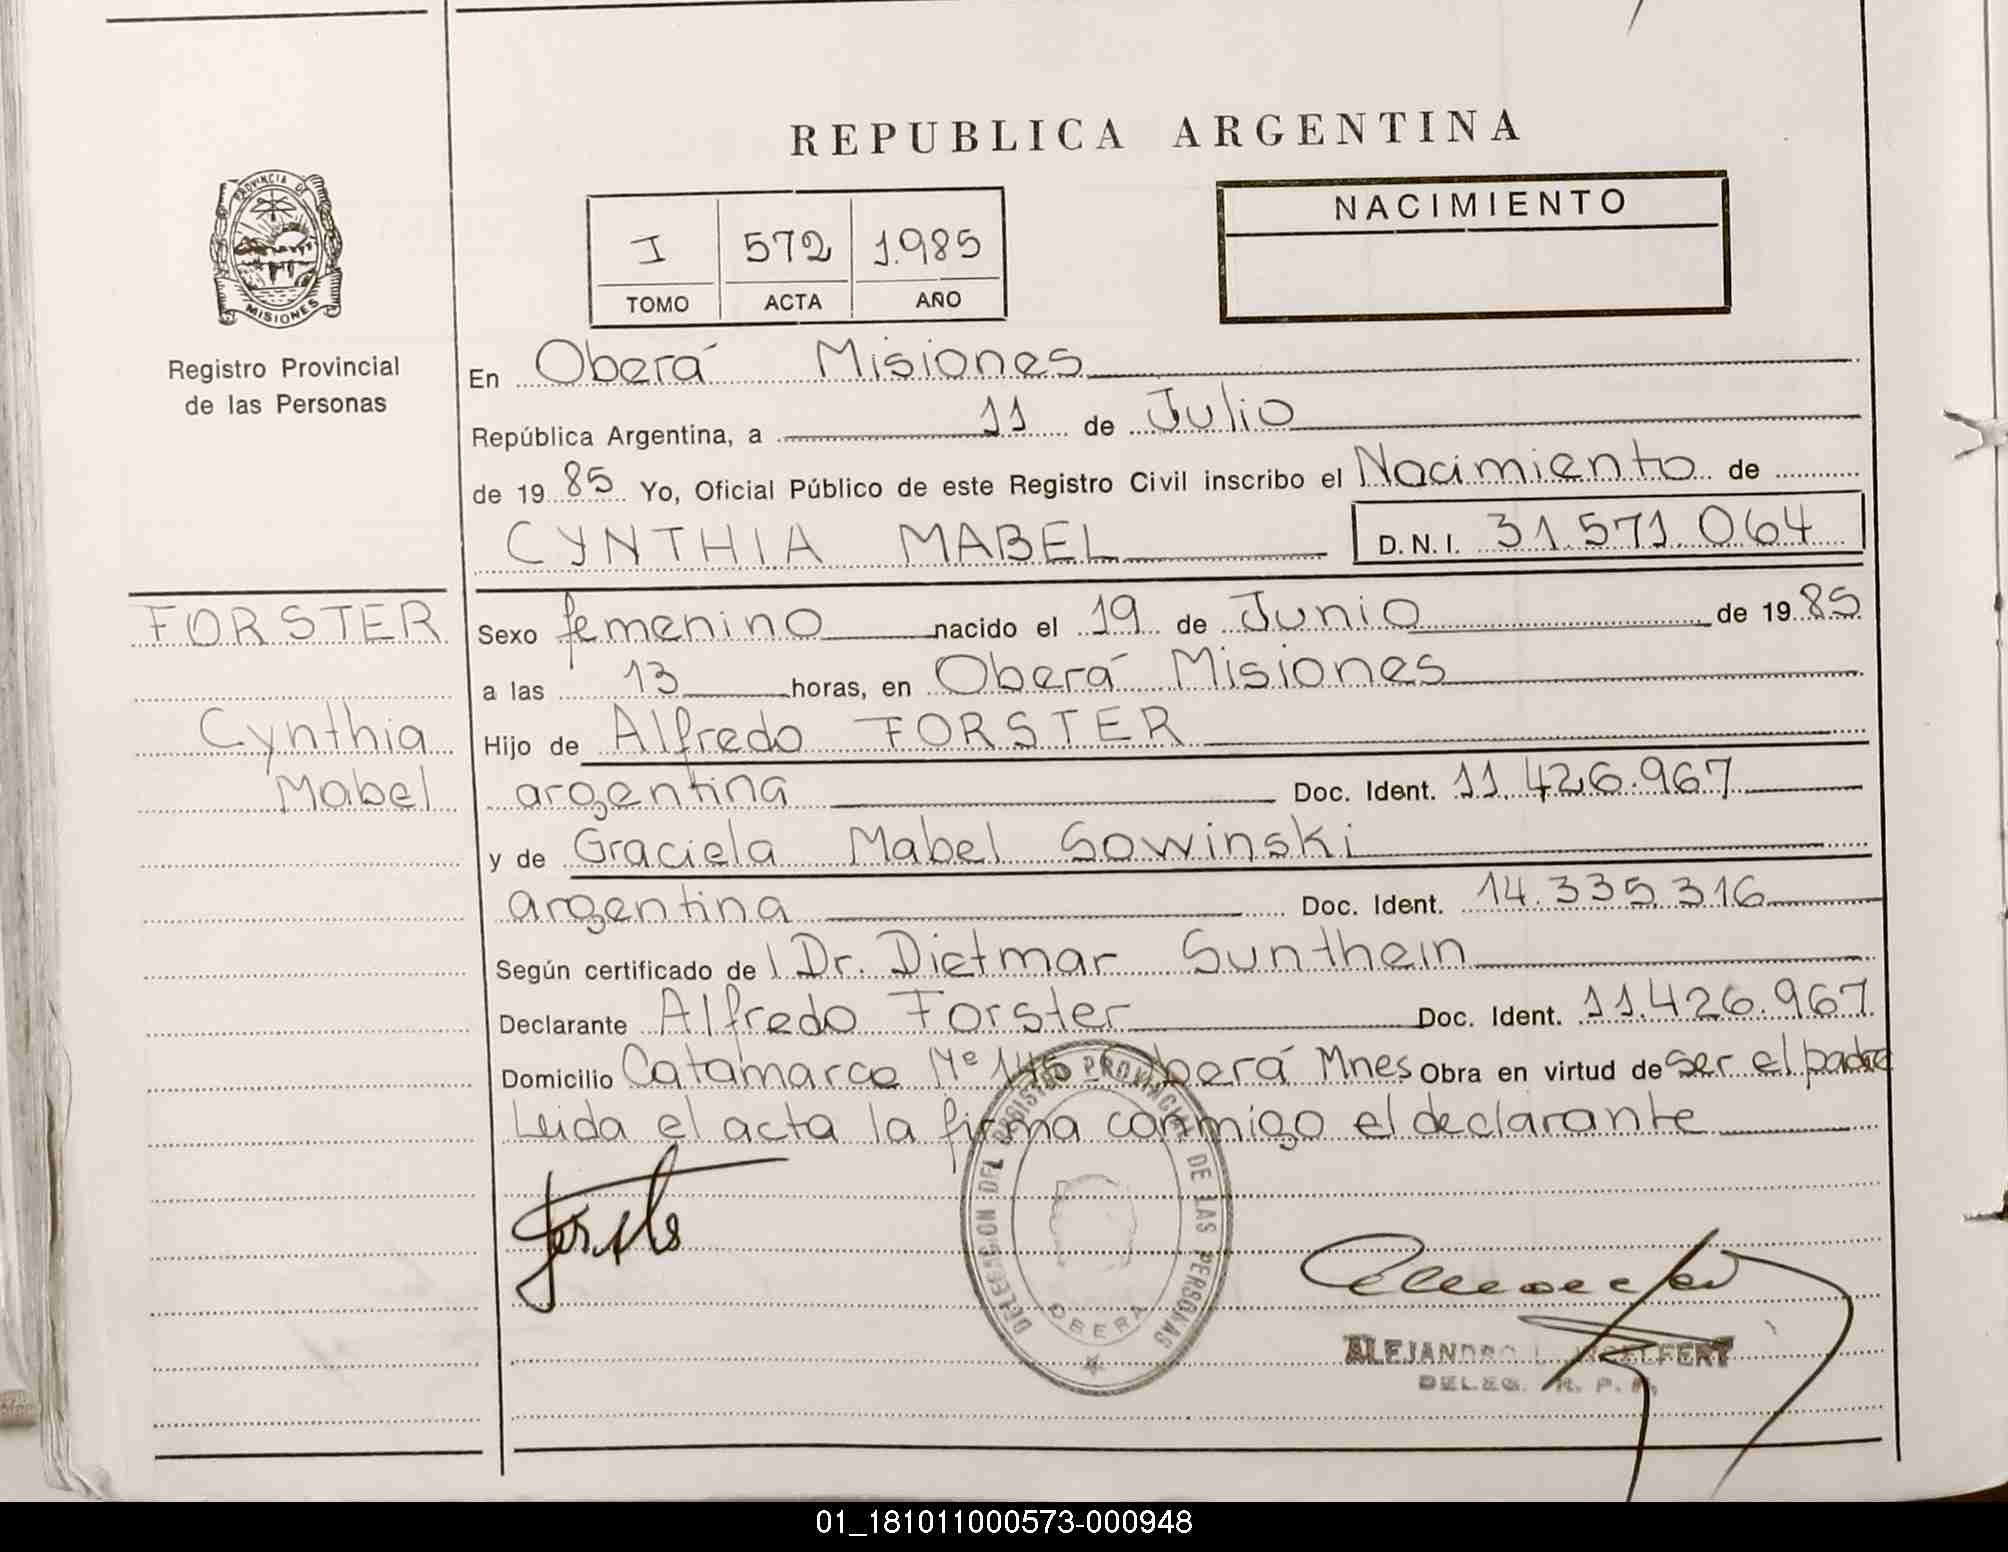 REPUBLICA ARGENTINA
PROVINCIA DE
MISIONES
Registro Provincial
de las Personas
I 572 1.985
TOMO ACTA AÑO
NACIMIENTO
En Oberá Misiones
República Argentina, a 11 de Julio
de 19 85 Yo, Oficial Público de este Registro Civil inscribo el Nacimiento de
CYNTHIA MABEL D.N.I. 31.571.064
FORSTER
Cynthia
Mabel
Sexo femenino nacido el 19 de Junio de 19 85
a las 13 horas, en Oberá Misiones
Hijo de Alfredo FORSTER
argentina Doc. Ident. 11.426.967
y de Graciela Mabel Sowinski
argentina Doc. Ident. 14.335.316
Según certificado de l Dr. Dietmar Sunthein
Declarante Alfredo Forster Doc. Ident. 11.426.967
Domicilio Catamarca Nº Oberá Mnes Obra en virtud de ser el padre
Leida el acta la firma conmigo el declarante
DELEGACION DEL REGISTRO PROVINCIAL DE LAS PERSONAS
OBERA
ALEJANDRO L.
DELEG. R. P. P.
01_181011000573-000948